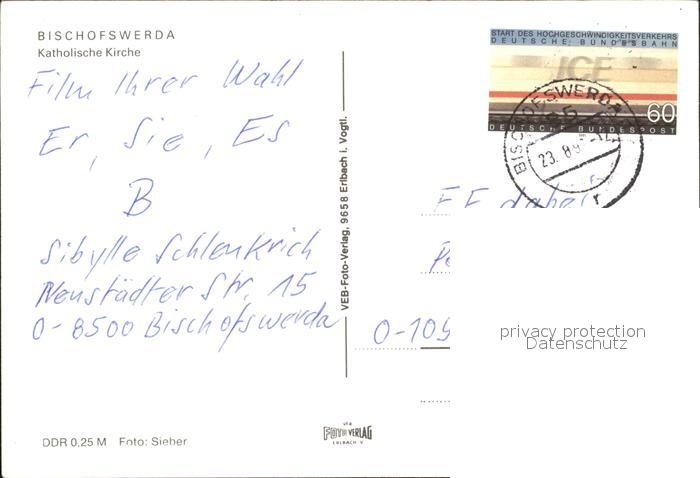 BISCHOFSWERDA
Katholische Kirche
Film Ihrer Wahl
Er, Sie, Es
B
Sibylle Schlenkrich
Neustädter Str. 15
O-8500 Bischofswerda
DDR 0,25 M Foto: Sieber
VEB-Foto-Verlag, 9658 Erlbach i. Vogtl.
VEB
FOTO VERLAG
ERLBACH V
START DES HOCHGESCHWINDIGKEITSVERKEHRS
DEUTSCHE BUNDESBAHN
ICE
60
DEUTSCHE BUNDESPOST
BISCHOFSWERDA
23.
FF dahei
O-109
privacy protection
Datenschutz